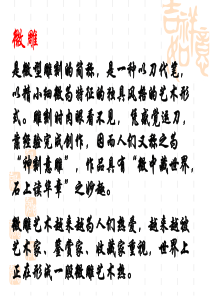 微雕
是微型雕刻的简称，是一种以刀代笔，
以精小细微为特征的独具风格的艺术形
式。雕刻时肉眼看不见，凭感觉运刀，
靠经验完成创作，因而人们又称之为
“神刻意雕”，作品具有“微中藏世界，
石上读华章”之妙趣。
微雕艺术越来越为人们热爱，越来越被
艺术家、鉴赏家、收藏家重视，世界上
正在形成一股微雕艺术热。